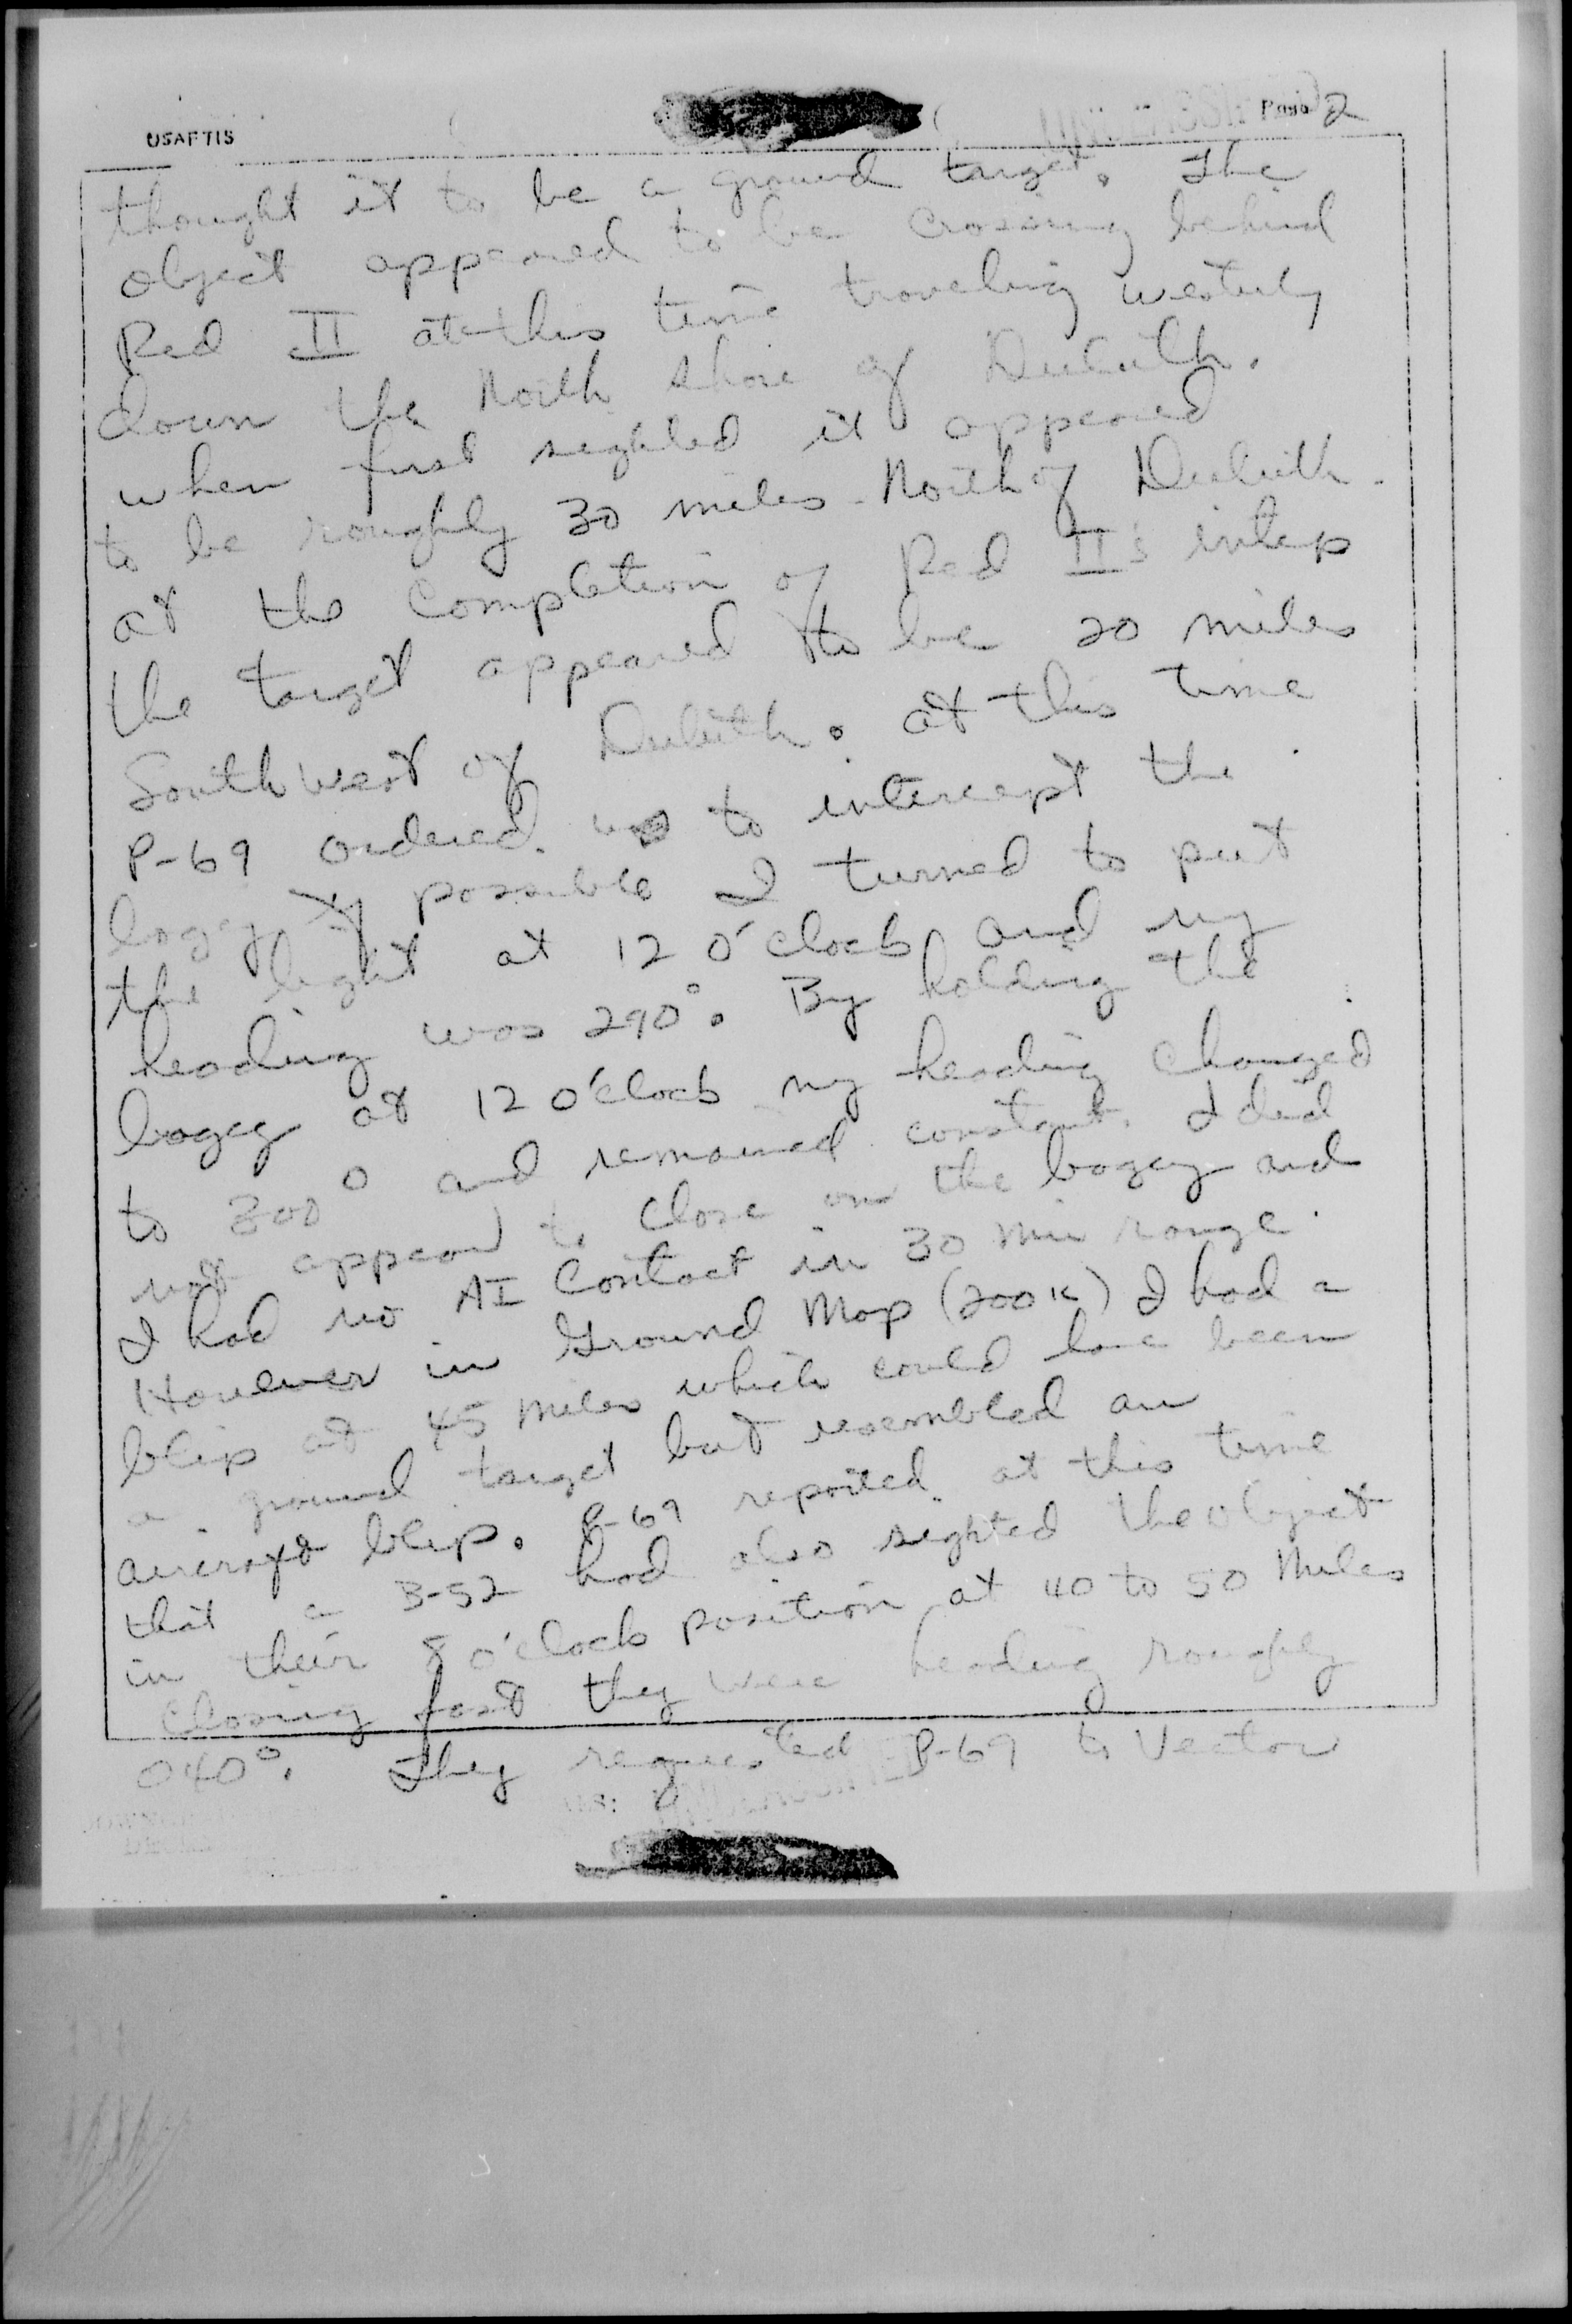 USAFTIS
UNCLASSIFIED Page 2
thought it to be a ground target. The
object appeared to be crossing behind
Red II at this time traveling westerly
down the North shore of Duluth.
when first sighted it appeared
to be roughly 30 miles North of Duluth.
at the completion of Red II's intcp
the target appeared to be 20 miles
Southwest of Duluth. at this time
P-69 ordered us to intercept the
bogey if possible I turned to put
the light at 12 o'clock and my
heading was 290°. By holding the
bogey at 12 o'clock my heading changed
to 300° and remained constant. I did
not appear to close on the bogey and
I had no AI Contact in 30 mi range.
However in Ground Map (200 K) I had a
blip at 45 miles which could have been
a ground target but resembled an
aircraft blip. P-69 reported at this time
that a B-52 had also sighted the object
in their 8 o'clock position at 40 to 50 miles
closing fast they were heading roughly
040°. They requested P-69 to Vector